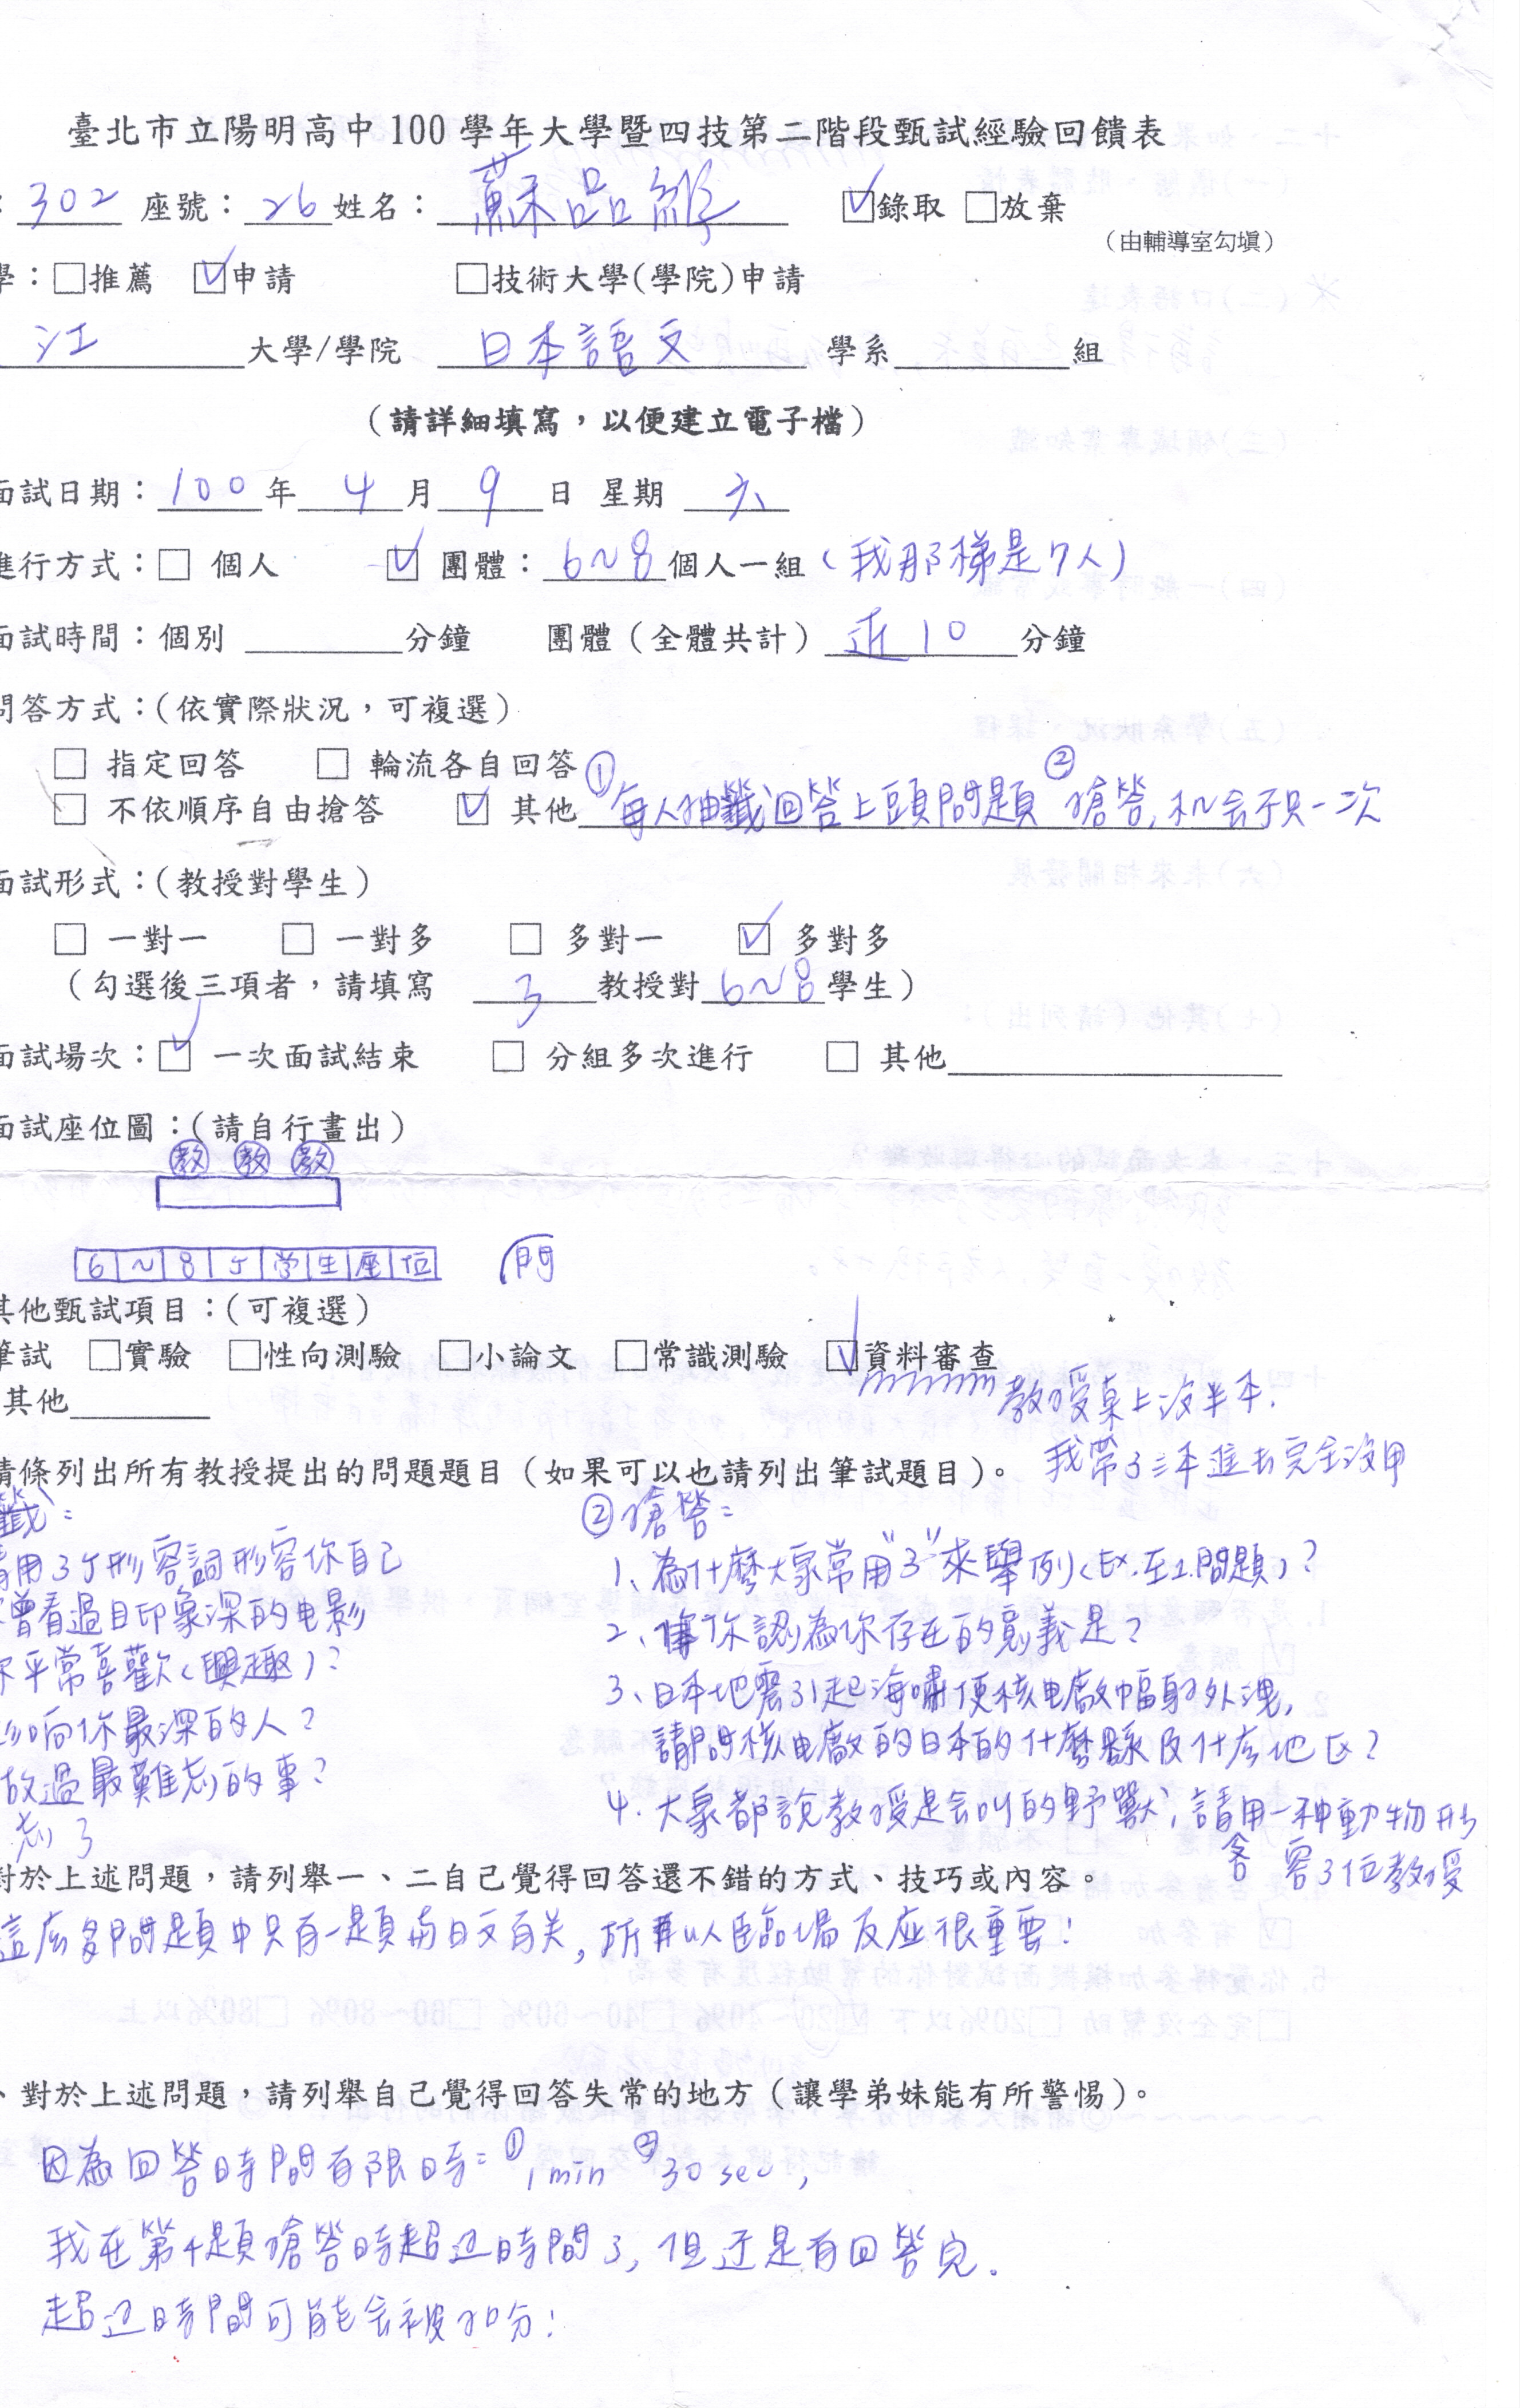 臺北市立陽明高中 100 學年大學暨四技第二階段甄試經驗回饋表
：302 座號：26 姓名：蘇品維 ☑錄取 □放棄
（由輔導室勾填）
學：□推薦 ☑申請 □技術大學(學院)申請
江 大學/學院 日本語文 學系 組
（請詳細填寫，以便建立電子檔）
面試日期：100 年 4 月 9 日 星期 六
進行方式：□ 個人 ☑ 團體：6~8 個人一組（我那梯是7人）
面試時間：個別 分鐘 團體（全體共計）近10 分鐘
問答方式：(依實際狀況，可複選)
□ 指定回答 □ 輪流各自回答
□ 不依順序自由搶答 ☑ 其他 ①每人抽籤回答上頭問題 ②搶答,机会不只一次
面試形式：(教授對學生)
□ 一對一 □ 一對多 □ 多對一 ☑ 多對多
（勾選後三項者，請填寫 3 教授對 6~8 學生）
面試場次：☑ 一次面試結束 □ 分組多次進行 □ 其他
面試座位圖：(請自行畫出)
教 教 教
6~8个学生座位 門
其他甄試項目：(可複選)
筆試 □實驗 □性向測驗 □小論文 □常識測驗 ☑資料審查
其他
教授桌上沒半本.
我帶了三本進去完全沒用
請條列出所有教授提出的問題題目（如果可以也請列出筆試題目）。
籤：
請用3个形容詞形容你自己
你曾看過目印象深的电影
你平常喜歡(興趣)?
影响你最深的人?
做過最難忘的事?
忘了
②搶答：
1、為什麼大家常用"3"來舉例(Ex.在1.問題)?
2、你認為你存在的意義是?
3、日本地震引起海嘯使核电廠輻射外洩,
請問核电廠的日本的什麼縣及什么地区?
4. 大家都說教授是会叫的野獸,請用一种動物形
容3位教授
對於上述問題，請列舉一、二自己覺得回答還不錯的方式、技巧或內容。
這麼多問題中只有一題與日文有关,所以臨場反应很重要!
、對於上述問題，請列舉自己覺得回答失常的地方（讓學弟妹能有所警惕）。
因為回答時間有限時：①1min ②30sec,
我在第4題搶答時超过時間了,但还是有回答完.
超过時間可能会被扣分!